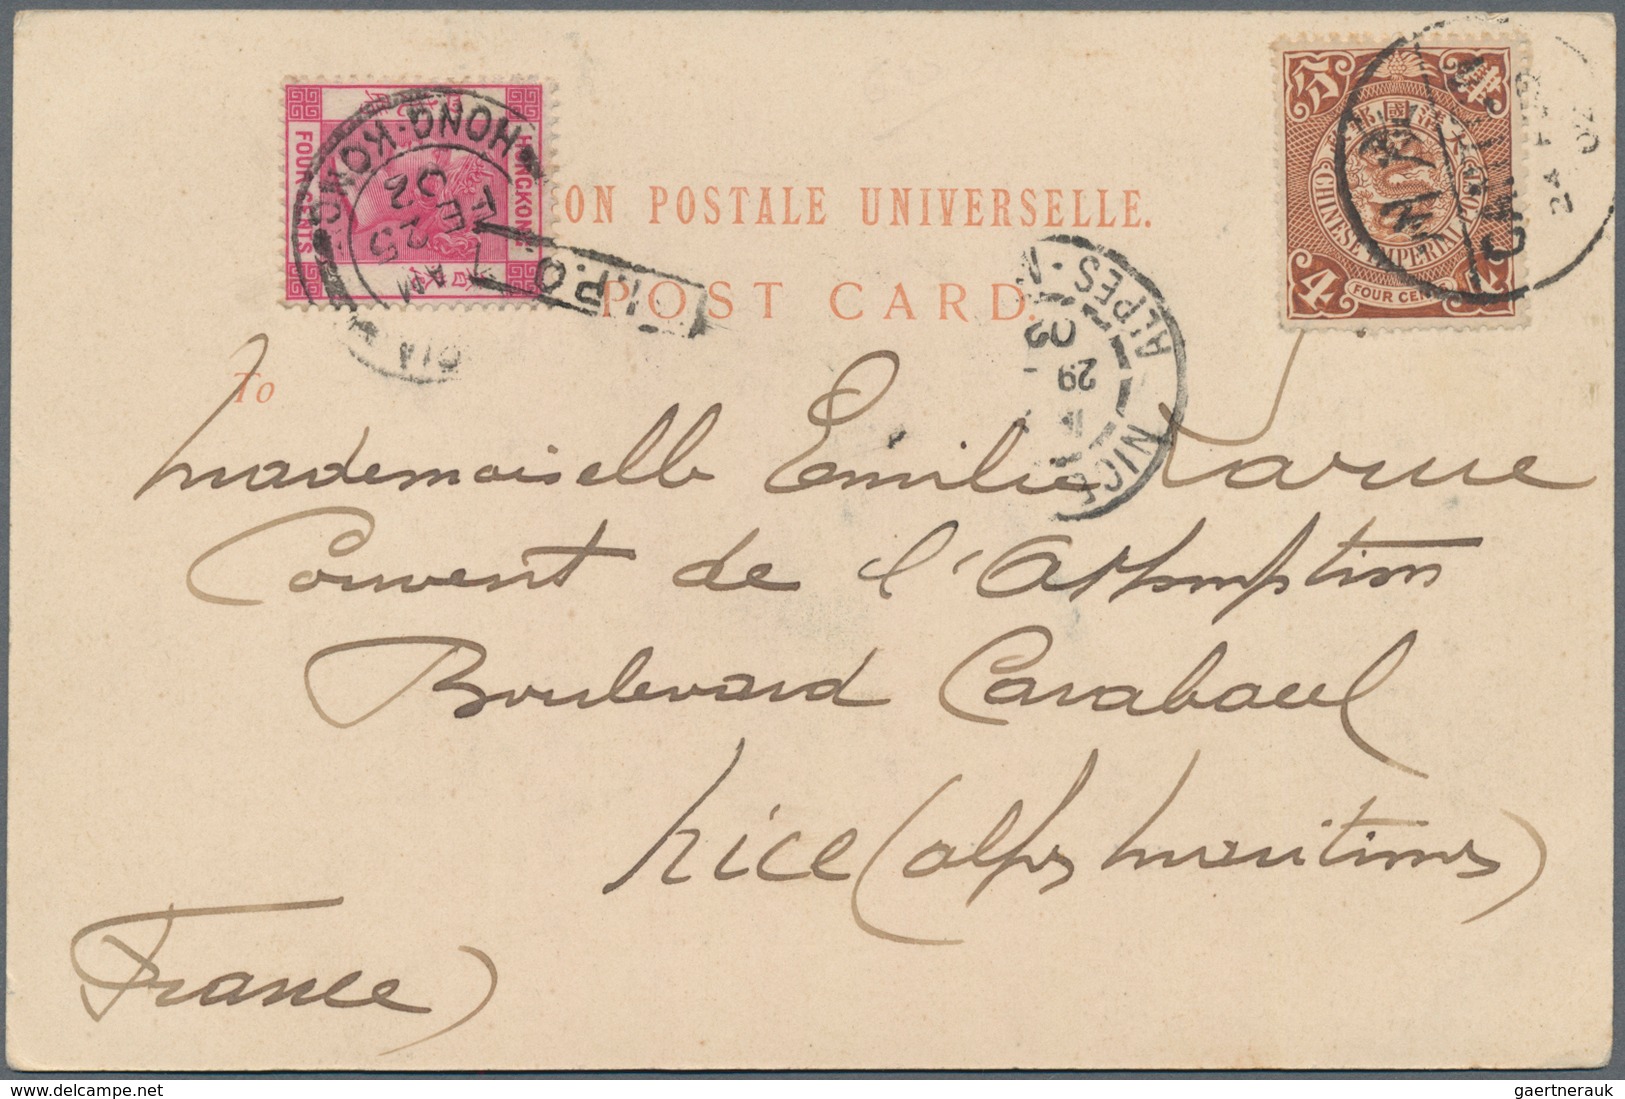 HONGKONG
FOUR CENTS
HONG·KONG
FE 25
02
I.P.O
CHINESE IMPERIAL POST
4
FOUR CEN
24 F
02
ON POSTALE UNIVERSELLE.
POST CARD.
NICE
ALPES-M
29
To
Mademoiselle Emilie
Couvent de l'Assomption
Boulevard Carabacel
Nice (Alpes Maritimes)
France)
gaertnerauk